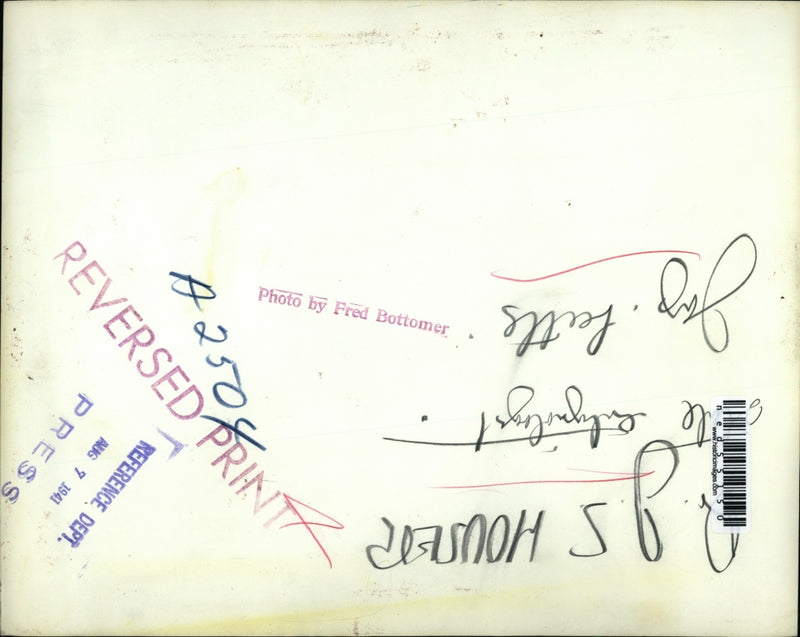 REVERSED PRINT
A2504
Photo by Fred Bottomer
PRESS
AUG 7 1941
REFERENCE DEPT.
Jap. beetle
Entymologist
J. S HOUSER